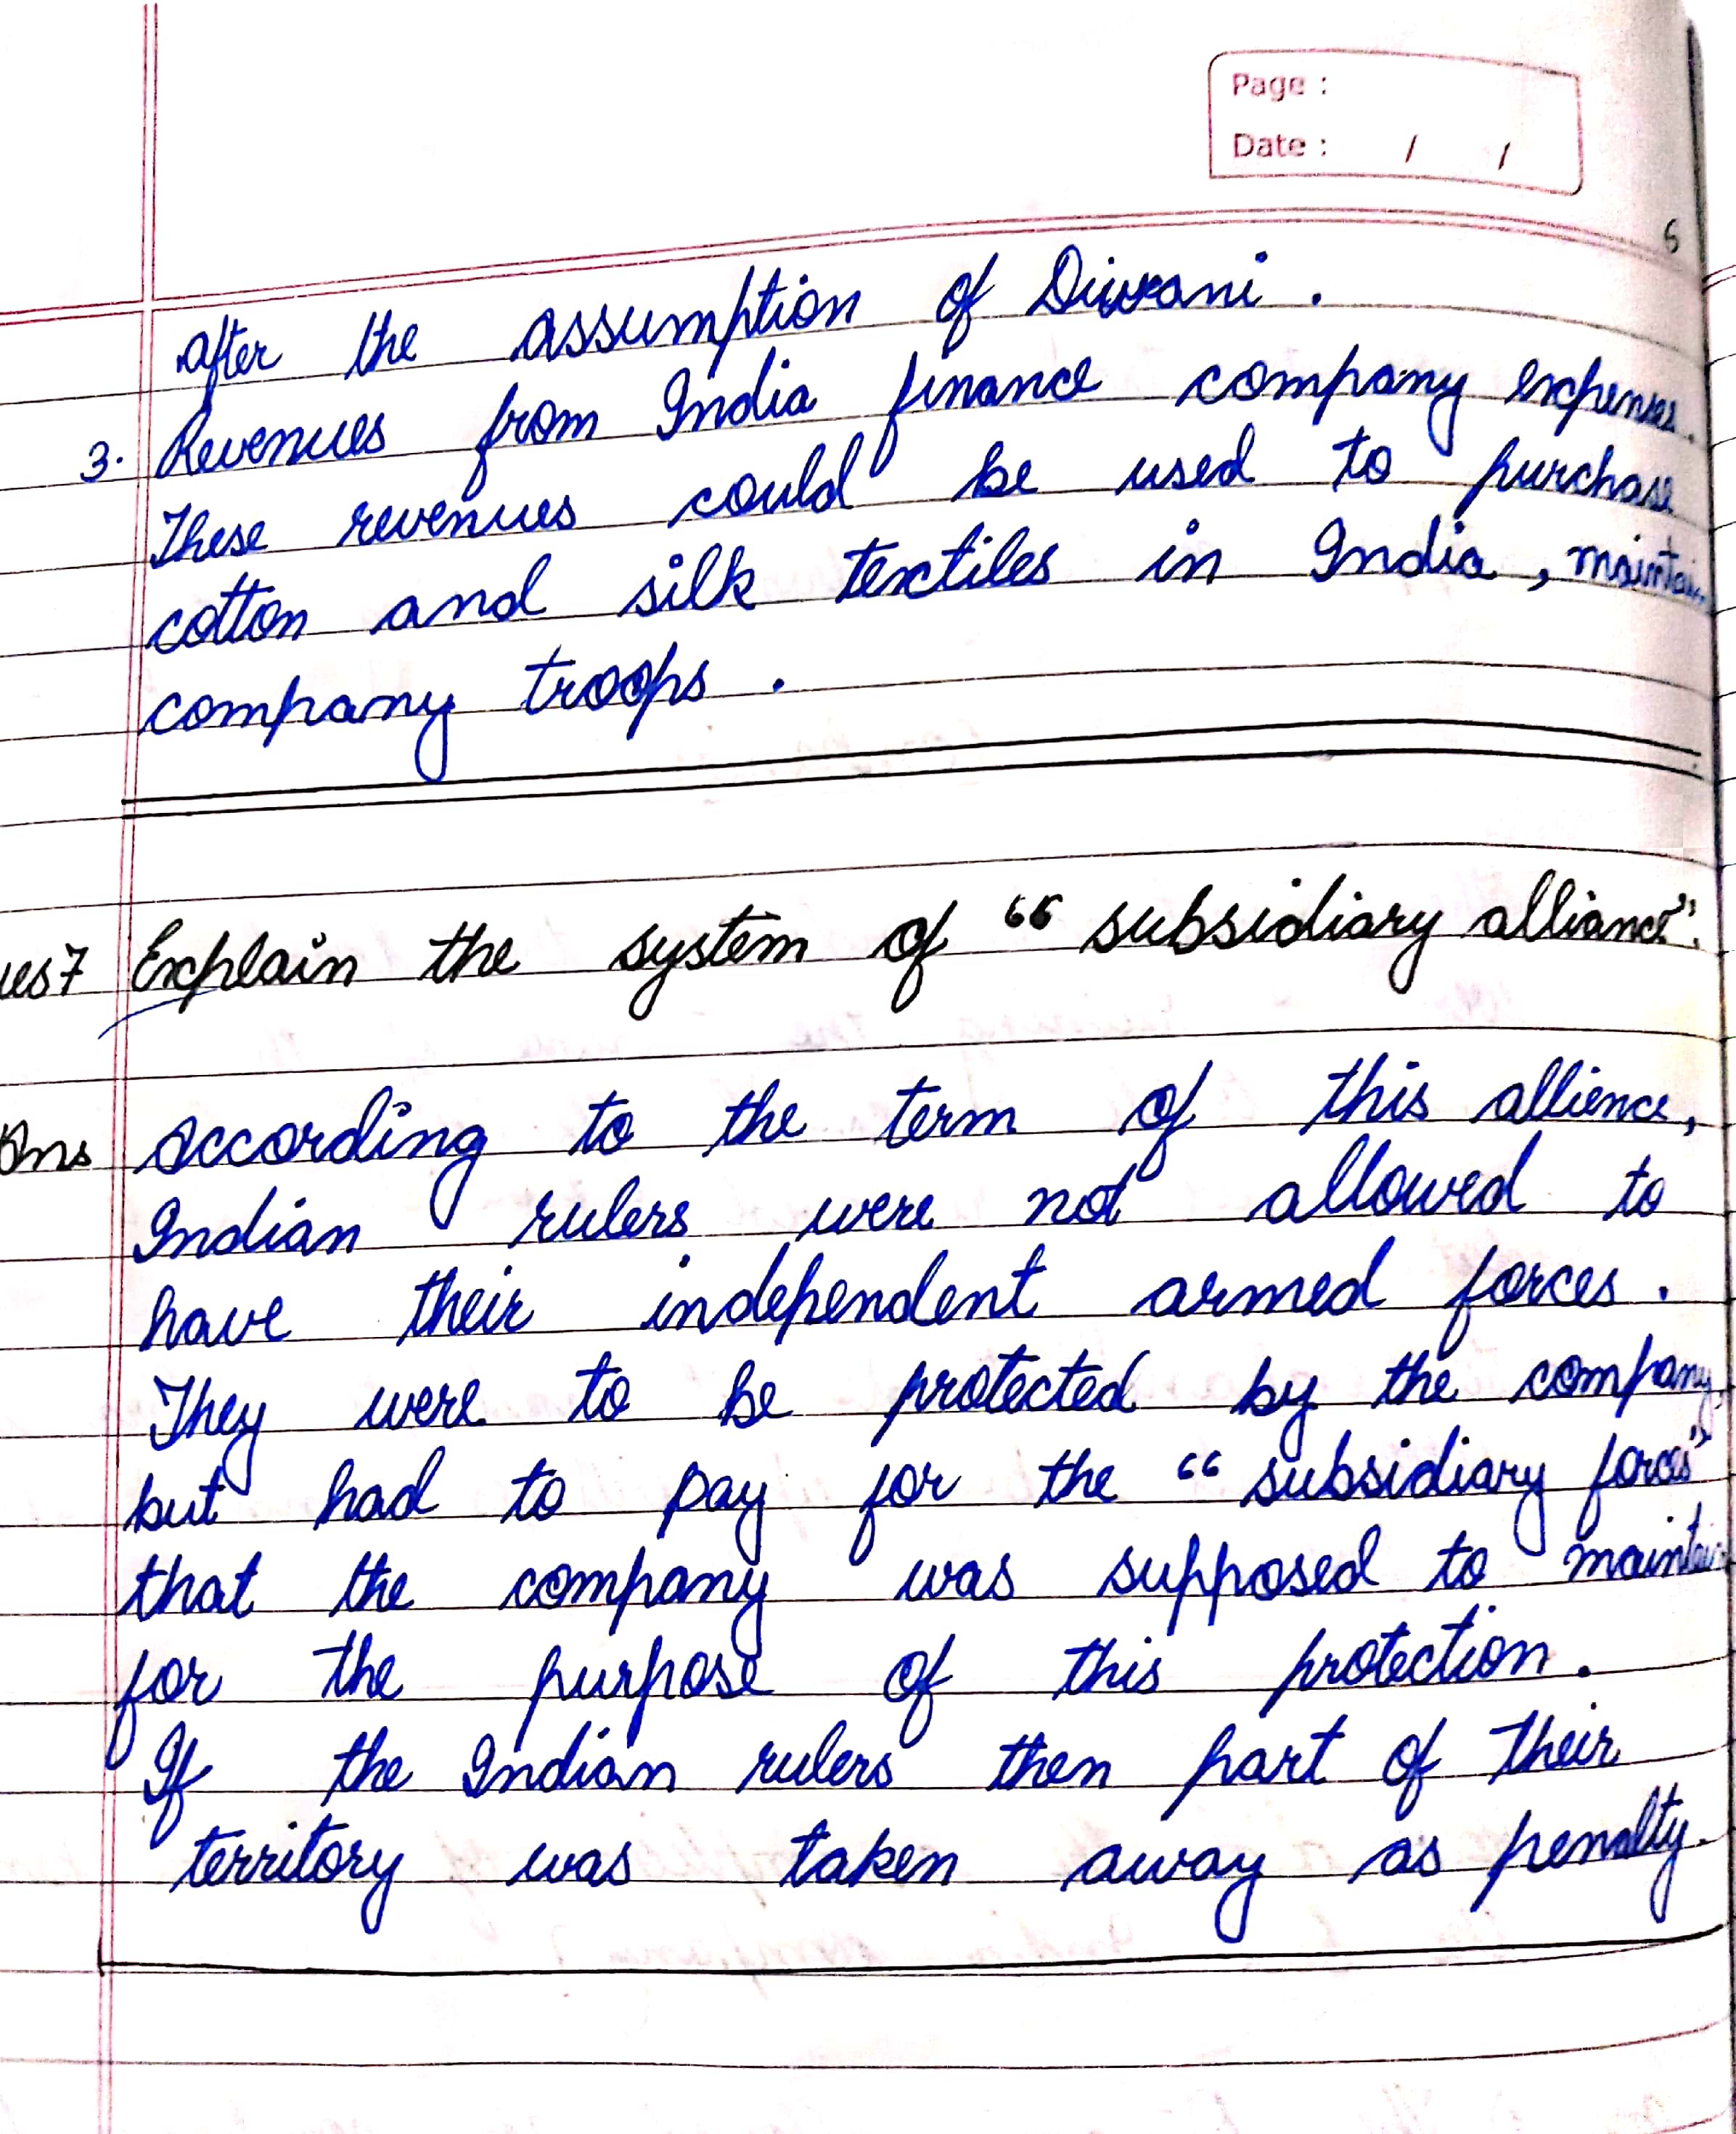 Page :
Date : / /
after the assumption of Diwani .
3. Revenues from India finance company expenses.
These revenues could be used to purchase
cotton and silk textiles in India , maintain
company troops .
ues 7 Explain the system of “ subsidiary alliance”.
Ans According to the term of this allience,
Indian rulers were not allowed to
have their independent armed forces .
They were to be protected by the company,
but had to pay for the “ subsidiary forces”
that the company was supposed to maintain
for the purpose of this protection .
If the Indian rulers then part of their
territory was taken away as penalty.